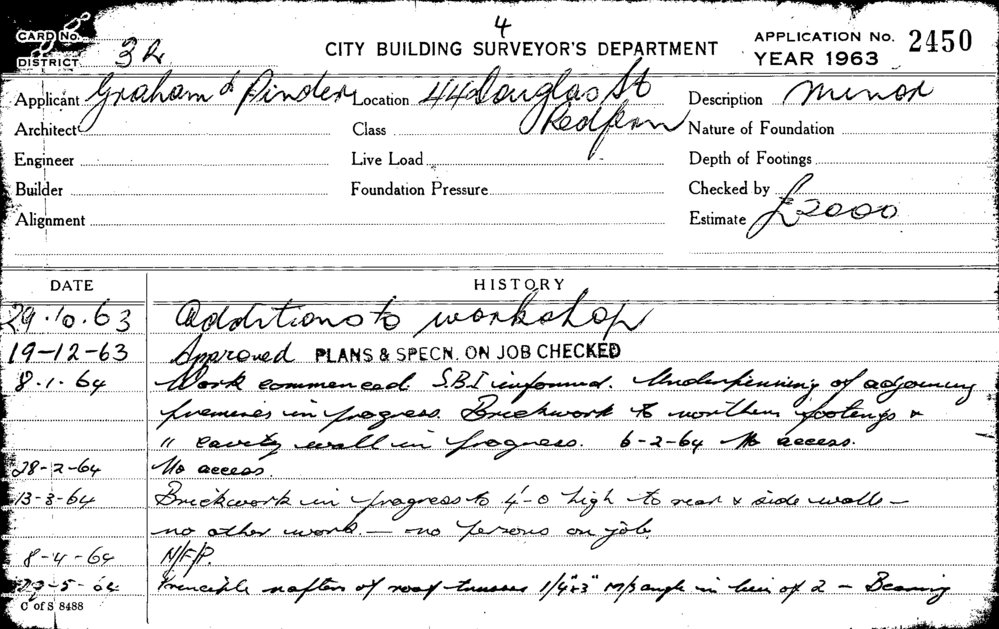 4
CARD No. CITY BUILDING SURVEYOR'S DEPARTMENT APPLICATION No. 2450
DISTRICT 32 YEAR 1963
Applicant Graham & Pinder Location 44 Douglas St Description Minor
Architect Class Redfern Nature of Foundation
Engineer Live Load Depth of Footings
Builder Foundation Pressure Checked by
Alignment Estimate £2000
DATE HISTORY
29.10.63 Additions to workshop
19-12-63 Approved PLANS & SPECN. ON JOB CHECKED
8.1.64 Work commenced. S.B.I informed. Underpinning of adjoining
premises in progress. Brickwork to northern footings &
" cavity wall in progress. 6-2-64 No access.
28-2-64 No access.
13-3-64 Brickwork in progress to 4'-0 high to rear & side walls -
no other work. - no persons on job.
8-4-64 N/F/P.
-5-64 Principle rafters of roof trusses 1/4"x3" M/S angle in lieu of 2 - Bearing
C of S 8488